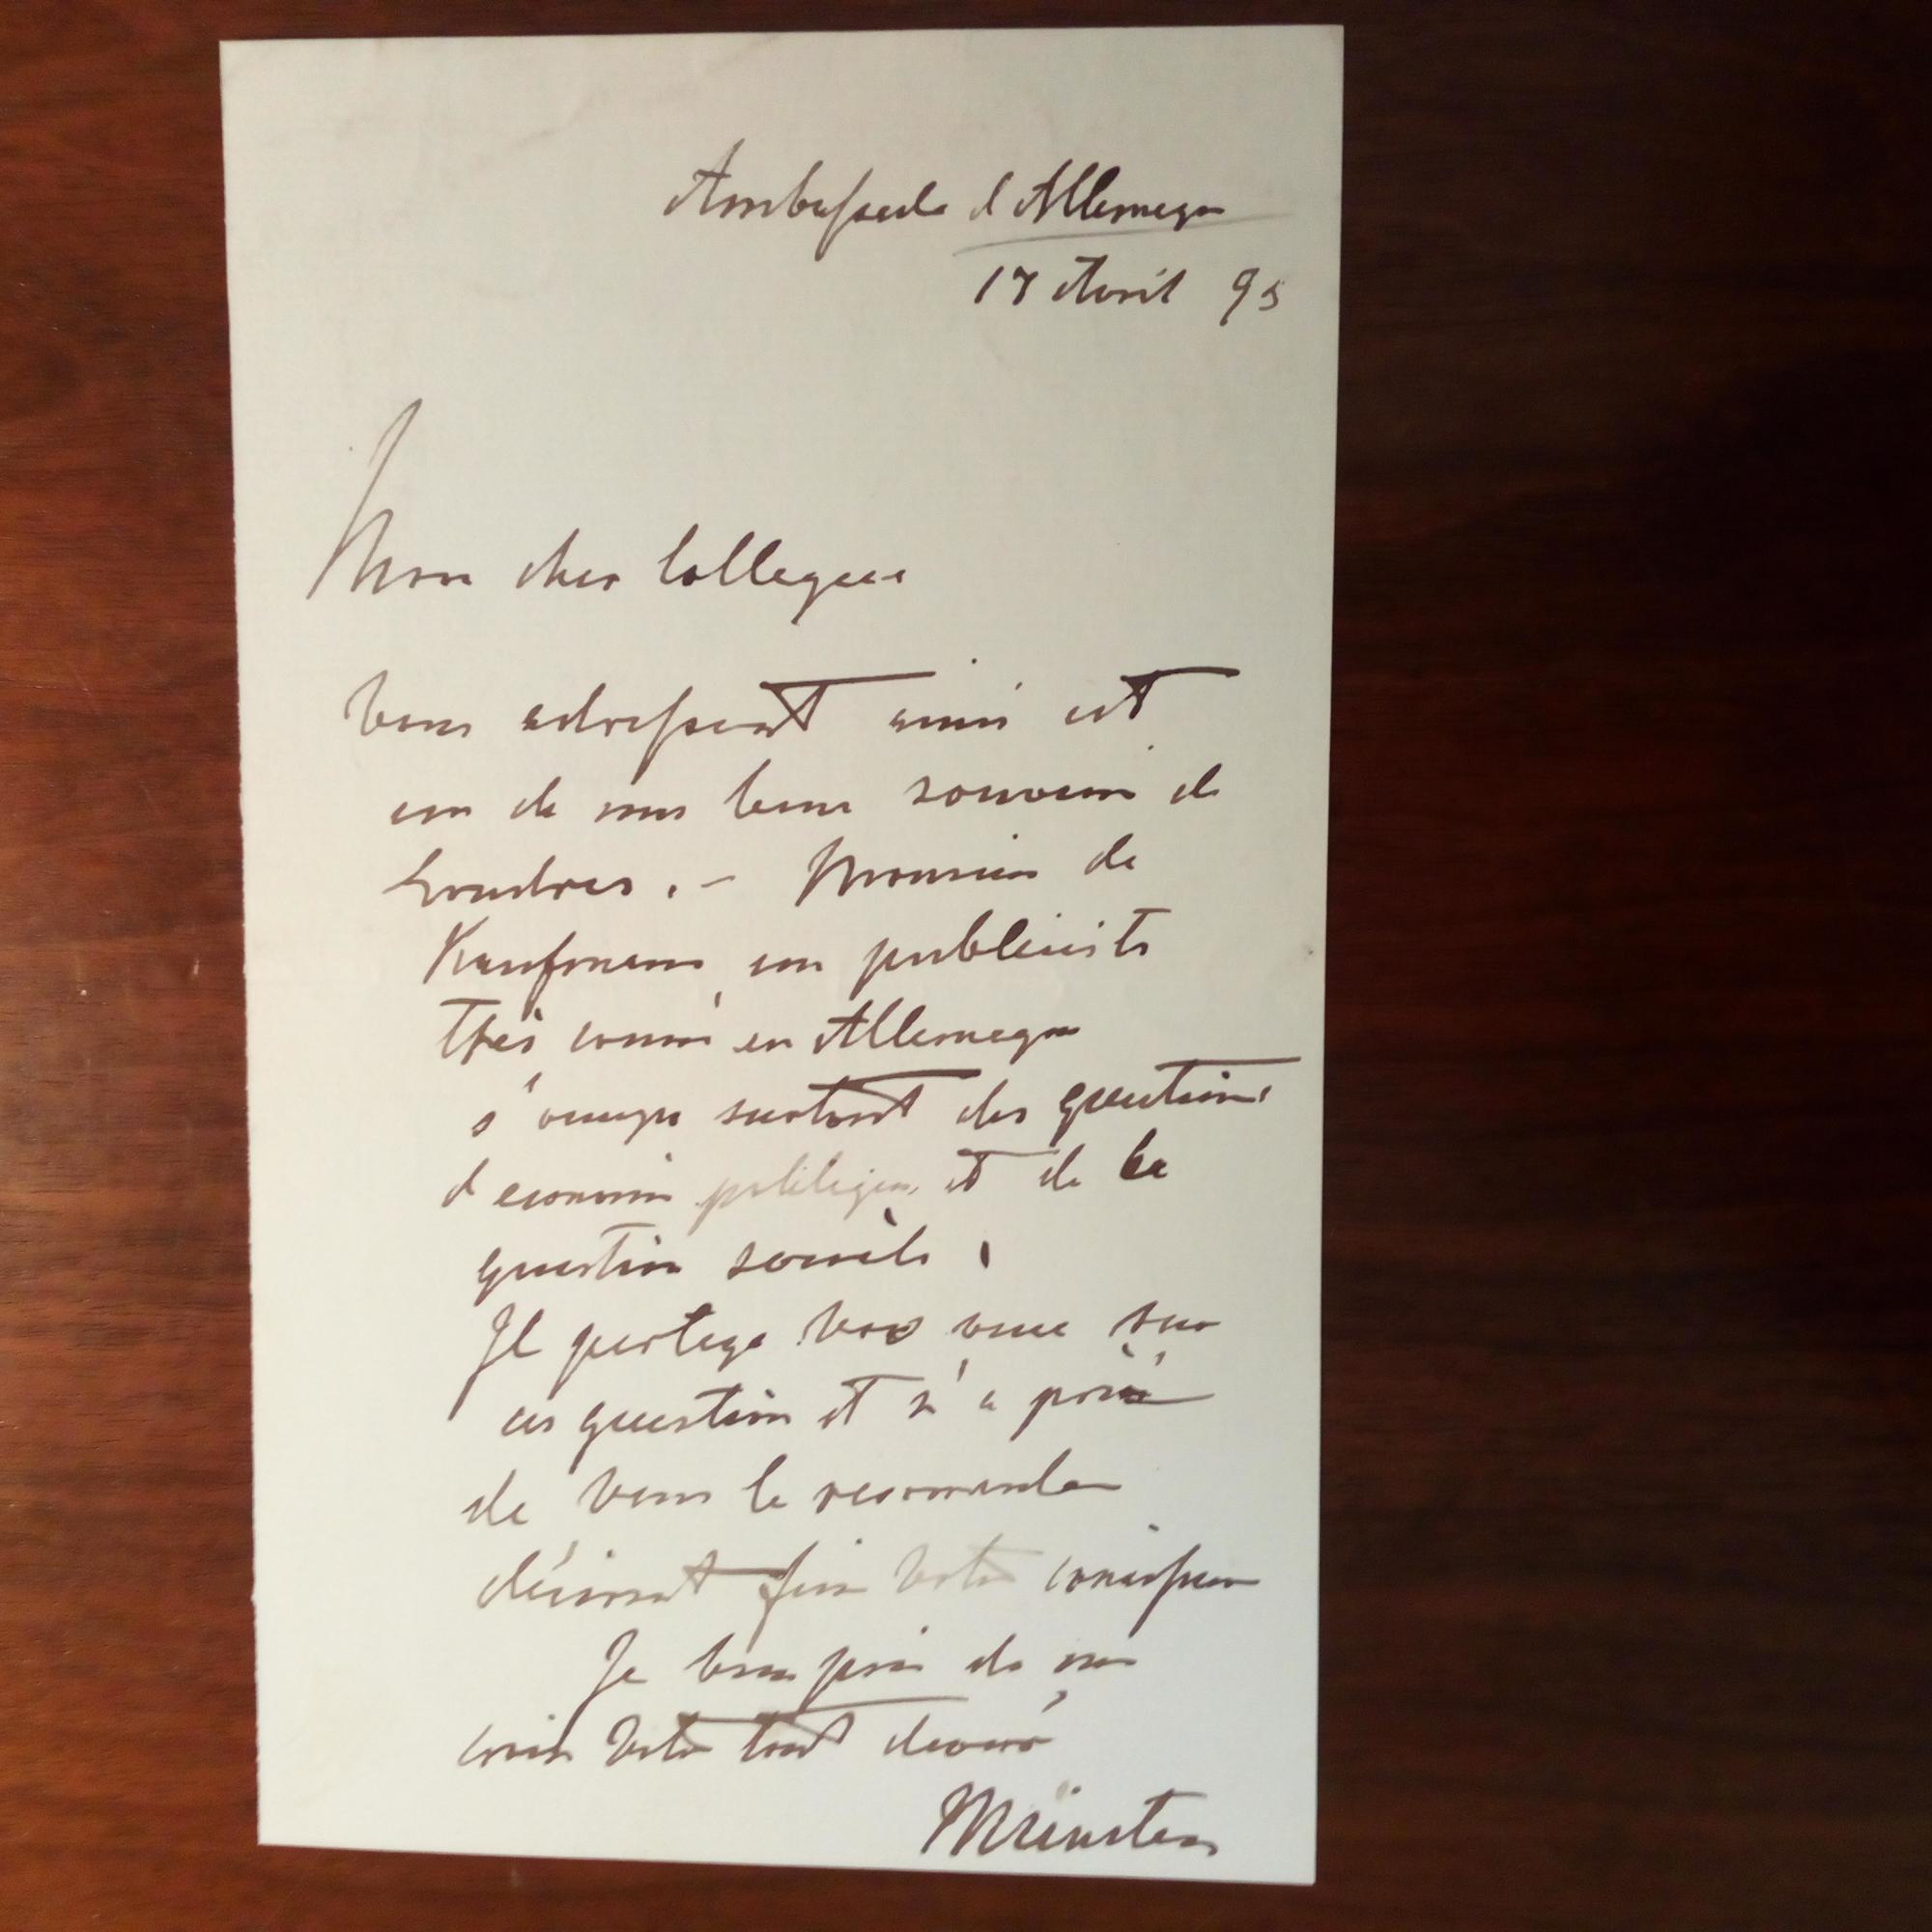 Ambassade d'Allemagne
17 Avril 95
Mon cher Collegue
Vous adressant ainsi est
un de nos bons souvenir de
Londres. – Monsieur de
Kaufmann, un publiciste
très connu en Allemagne
s'occupe surtout des questions
d'economie politique, et de la
question sociale.
Il partage vos vues sur
ces question et m'a prié
de vous le recommander
désirant faire votre connaissance
Je vous prie de me
croire votre tout devoué
Münster